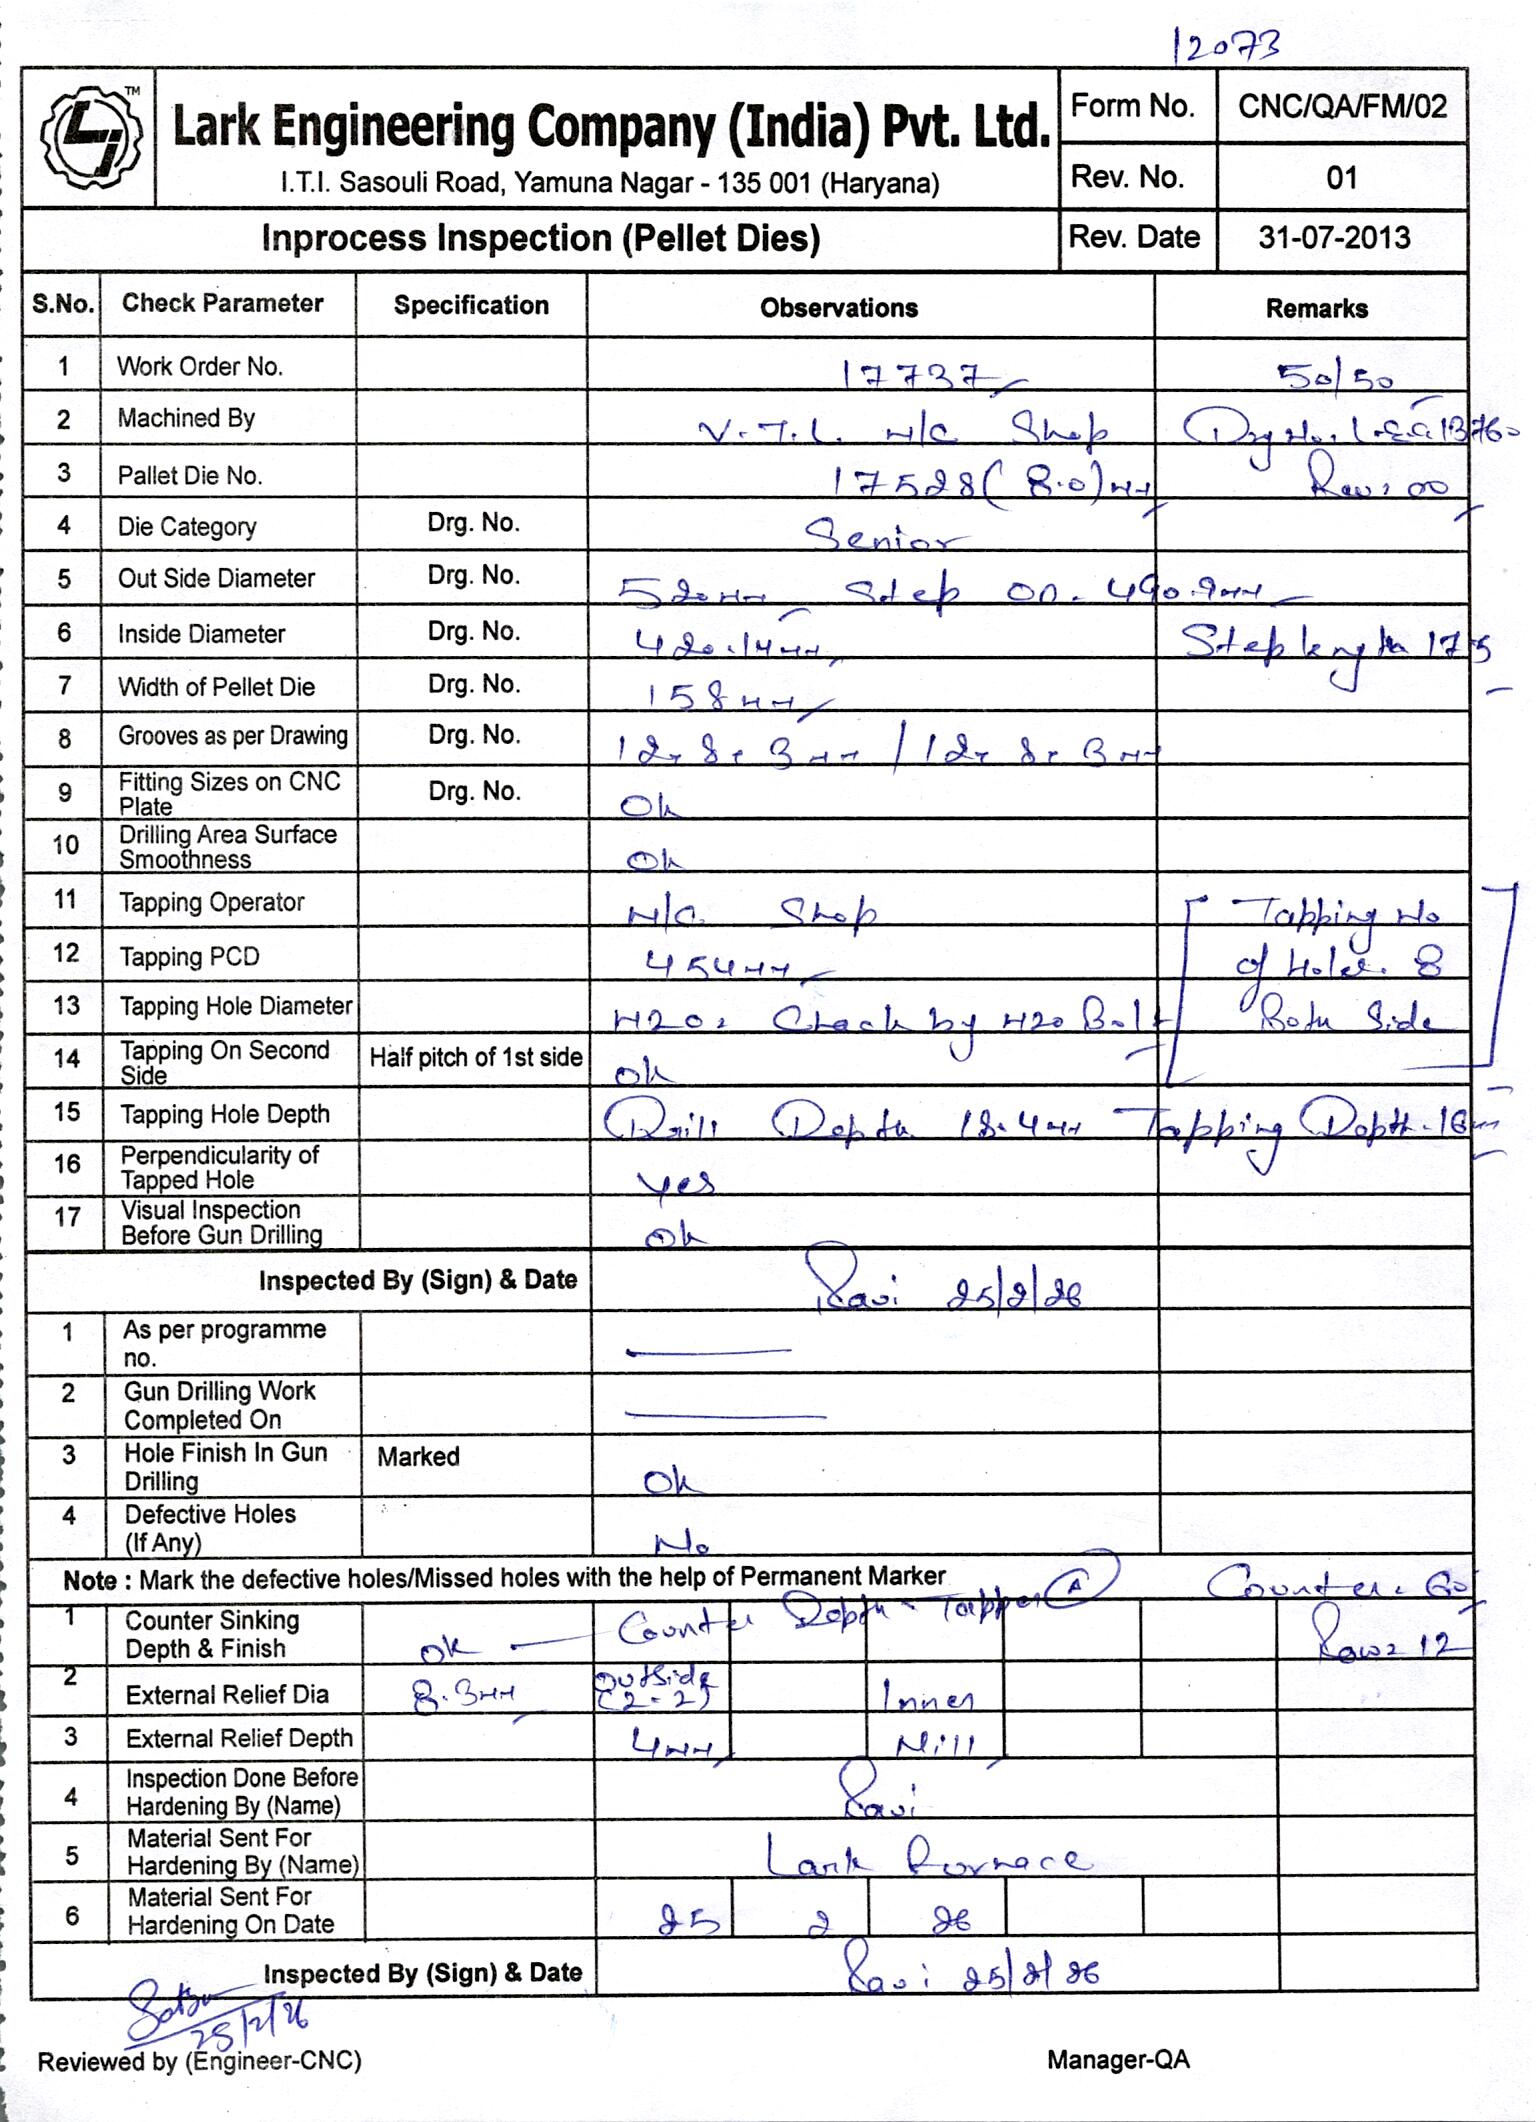 12073
Lark Engineering Company (India) Pvt. Ltd.
I.T.I. Sasouli Road, Yamuna Nagar - 135 001 (Haryana)
Form No. CNC/QA/FM/02
Rev. No. 01
Inprocess Inspection (Pellet Dies) Rev. Date 31-07-2013
S.No. Check Parameter Specification Observations Remarks
1 Work Order No. 17737 50/50
2 Machined By V.T.L. M/C Shop Drg No. L.E.C. 13760
3 Pallet Die No. 17528 (8.0) mm Rev: 00
4 Die Category Drg. No. Senior
5 Out Side Diameter Drg. No. 520mm Step OD. 490.9mm
6 Inside Diameter Drg. No. 420.14mm Step length 17.5
7 Width of Pellet Die Drg. No. 158mm
8 Grooves as per Drawing Drg. No. 12 8 3mm / 12 8 3mm
9 Fitting Sizes on CNC Plate Drg. No. Ok
10 Drilling Area Surface Smoothness Ok
11 Tapping Operator M/C Shop Tapping No
12 Tapping PCD 454mm of Holes. 8
13 Tapping Hole Diameter M20. Check by M20 Bolt Both Side
14 Tapping On Second Side Half pitch of 1st side Ok
15 Tapping Hole Depth Drill Depth 18.4mm Tapping Depth-16mm
16 Perpendicularity of Tapped Hole Yes
17 Visual Inspection Before Gun Drilling Ok
Inspected By (Sign) & Date Ravi 25/2/26
1 As per programme no.
2 Gun Drilling Work Completed On
3 Hole Finish In Gun Drilling Marked Ok
4 Defective Holes (If Any) No
Note : Mark the defective holes/Missed holes with the help of Permanent Marker Counter. 60°
1 Counter Sinking Depth & Finish OK Counter Depth - Tapper A Row 12
2 External Relief Dia 8.3mm Outside (2-2) Inner
3 External Relief Depth 4mm Nill
4 Inspection Done Before Hardening By (Name) Ravi
5 Material Sent For Hardening By (Name) Lark Furnace
6 Material Sent For Hardening On Date 25 2 26
Inspected By (Sign) & Date Ravi 25/2/26
25/2/26
Reviewed by (Engineer-CNC) Manager-QA